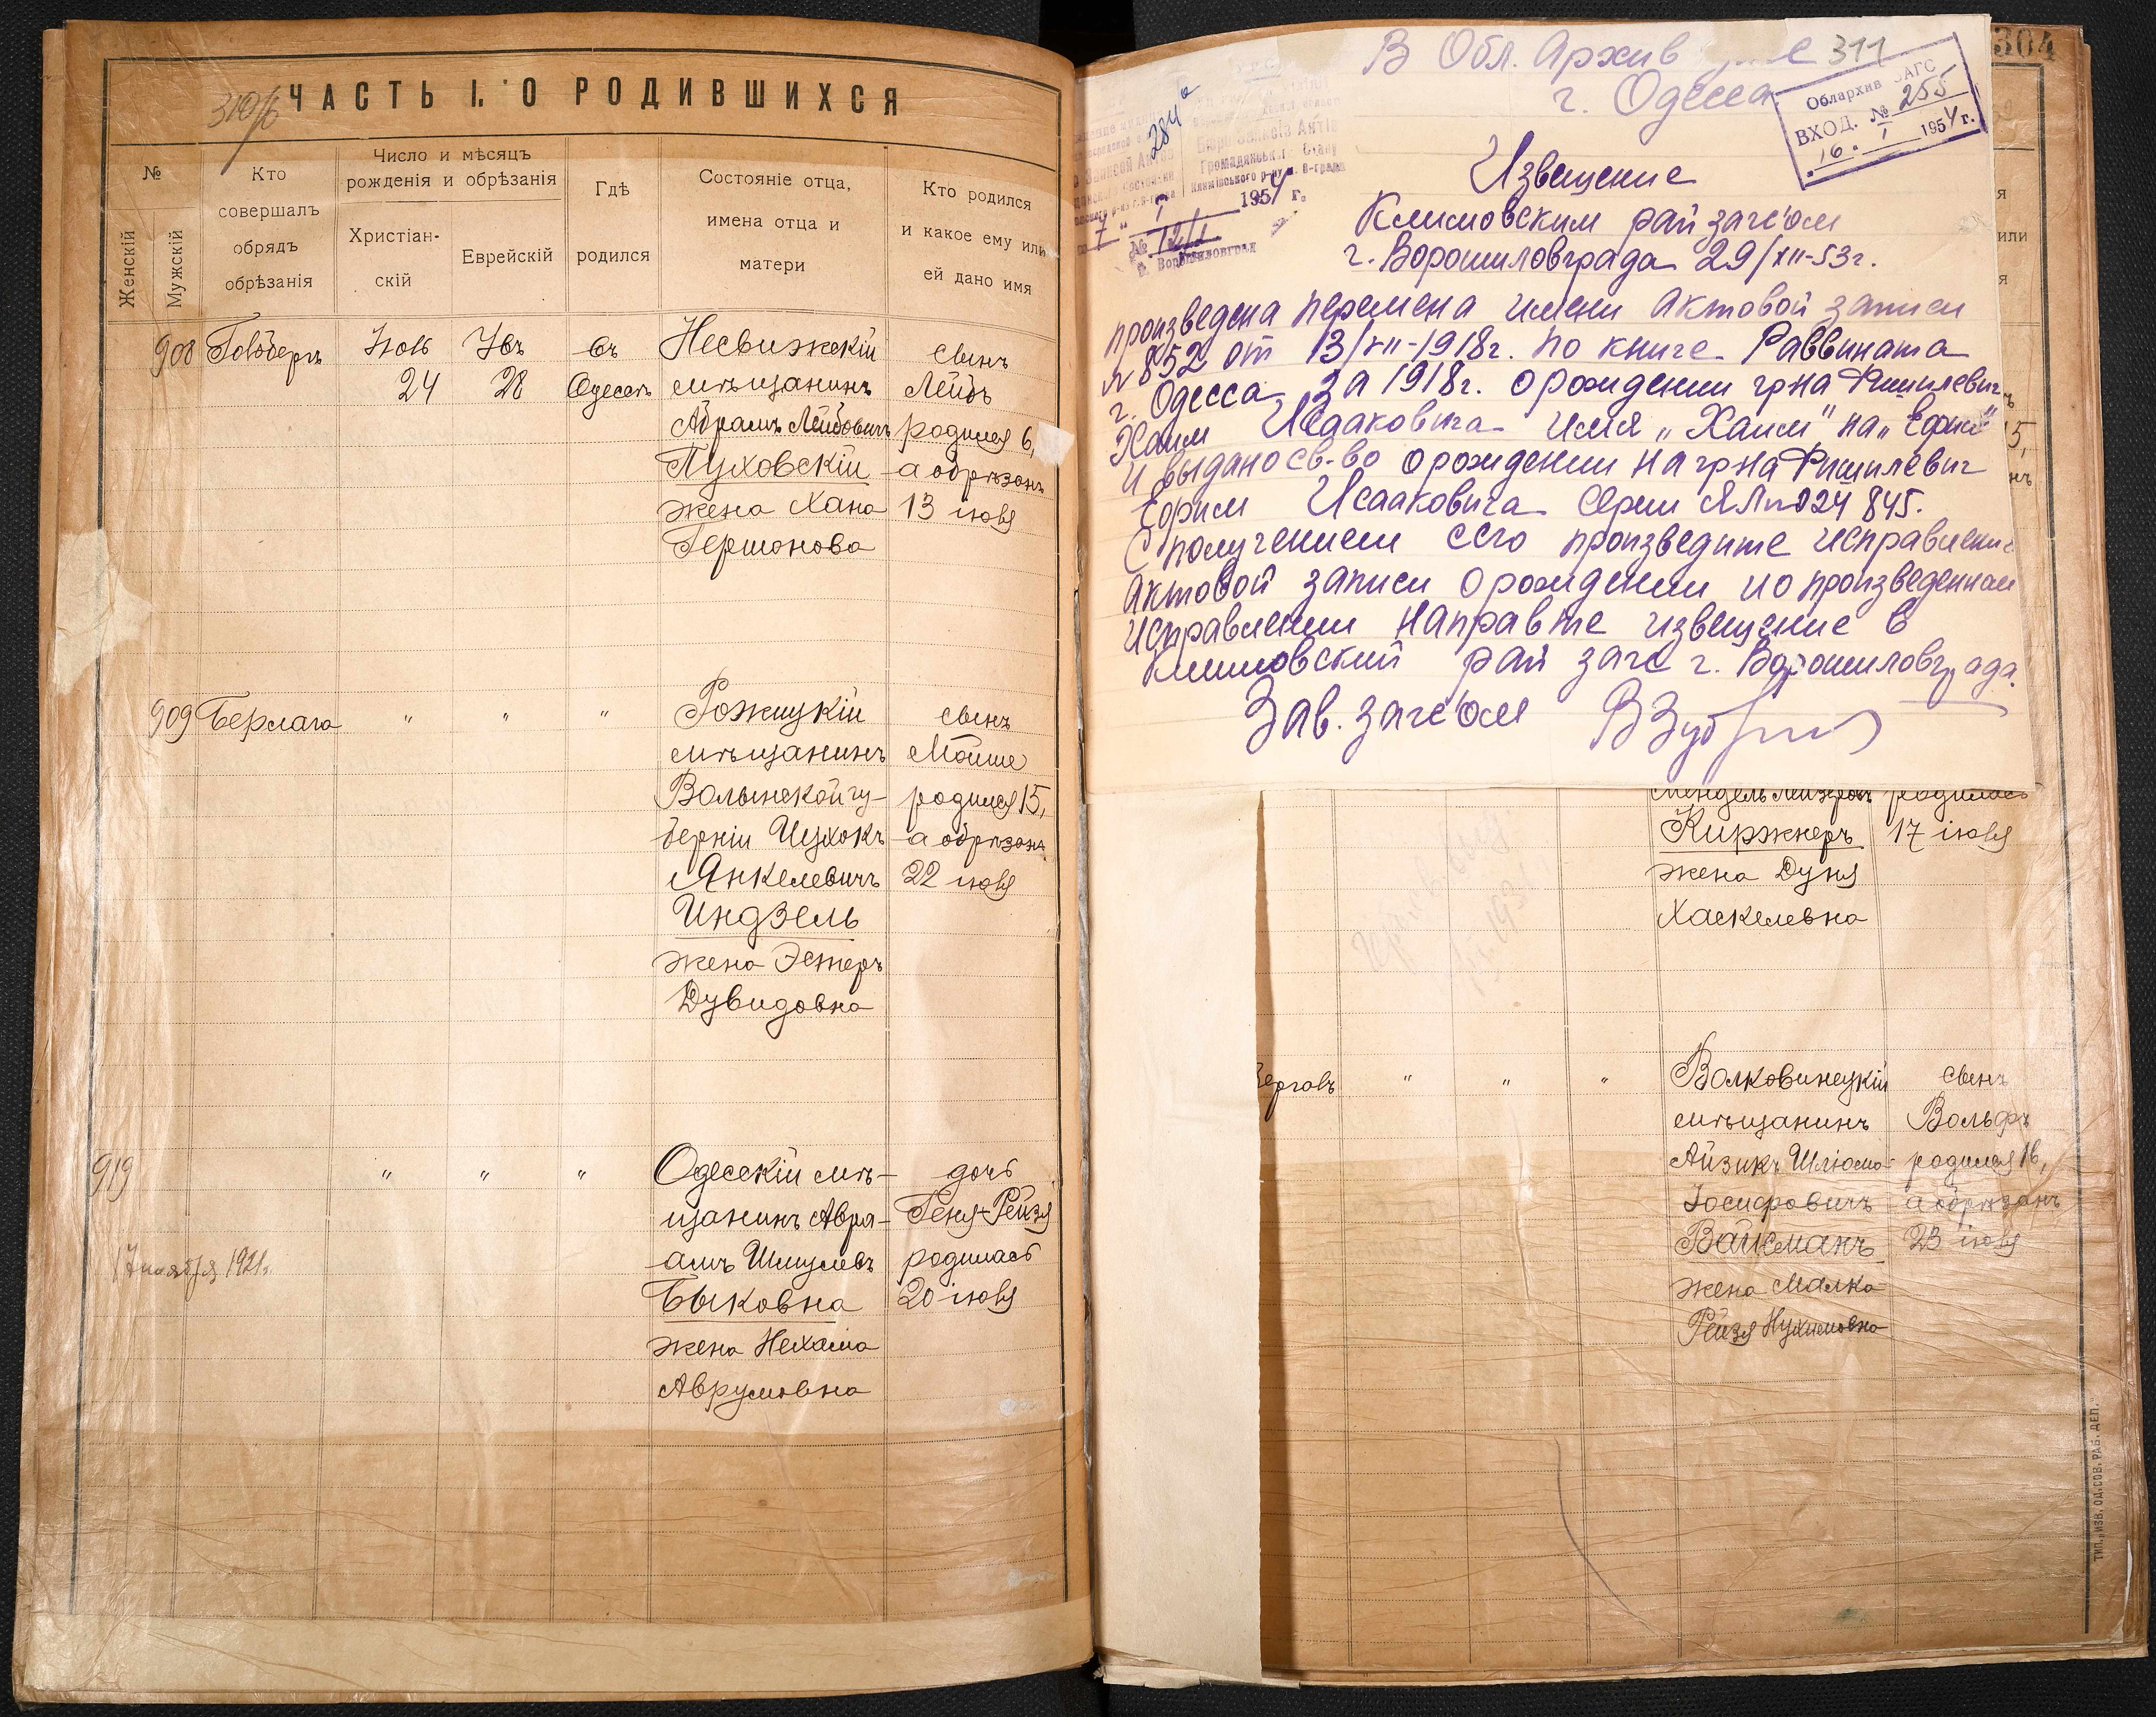 310/б
ЧАСТЬ I. О РОДИВШИХСЯ
№
Женскій
Мужскій
Кто
совершалъ
обрядъ
обрѣзанія
Число и мѣсяцъ
рожденія и обрѣзанія
Христіан-
скій
Еврейскій
Гдѣ
родился
Состояніе отца,
имена отца и
матери
Кто родился
и какое ему или
ей дано имя
908
24
28
въ
Одессѣ
Несвижскій
мѣщанинъ
Абрамъ Лейбовичъ
Пуховскій
жена Хана
Гершонова
сынъ
Лейбъ
родился 6,
а обрѣзанъ
13 іюля
909 Берлага
" " "
Рожицкій
мѣщанинъ
Волынской гу-
берніи Ицхокъ
Янкелевичъ
Индзель
жена Эстеръ
Дувидовна
сынъ
Мойше
родился 15,
а обрѣзанъ
22 іюля
919
" " "
Одесскій мѣ-
щанинъ Авра-
амъ Шмулевъ
Быковна
жена Нехама
Аврумовна
дочь
Геня-Рейзя
родилась
20 іюля
17 ноября 1921г.
В Обл. Архив
г. Одесса
311
304
Облархив ЗАГС
ВХОД. № 255
16. I 1954 г.
284а
Бюро Записів Актів
Громадянськ. Стану
7 " I 1954 г.
№ 12/1
г. Ворошиловград
Извещение
Климовским рай загс'ом
г. Ворошиловграда 29/XII-53г.
произведена перемена имени актовой записи
№ 852 от 13/VII-1918г. по книге Раввината
г. Одесса за 1918г. о рождении гр-на Фишилевич
Хаим Исааковича имя „Хаим" на „Ефим"
и выдано св-во о рождении на гр-на Фишилевич
Ефим Исааковича Серии ЯЛ № 024845.
С получением сего произведите исправление
актовой записи о рождении и о произведенном
исправлении направьте извещение в
Климовский рай загс г. Ворошиловграда.
Зав. загс'ом
Мендель Лейзеровъ
Киржнеръ
жена Дуня
Хаскелевна
родилась
17 іюля
" " "
Волковинецкій
мѣщанинъ
Айзикъ Шліома-
Іосифовичъ
Вайсманъ
жена Малка
Рейзя Нухимовна
сынъ
Вольфъ
родился 16,
а обрѣзанъ
23 іюля
ТИП. „ИЗВ. ОД. СОВ. РАБ. ДЕП."